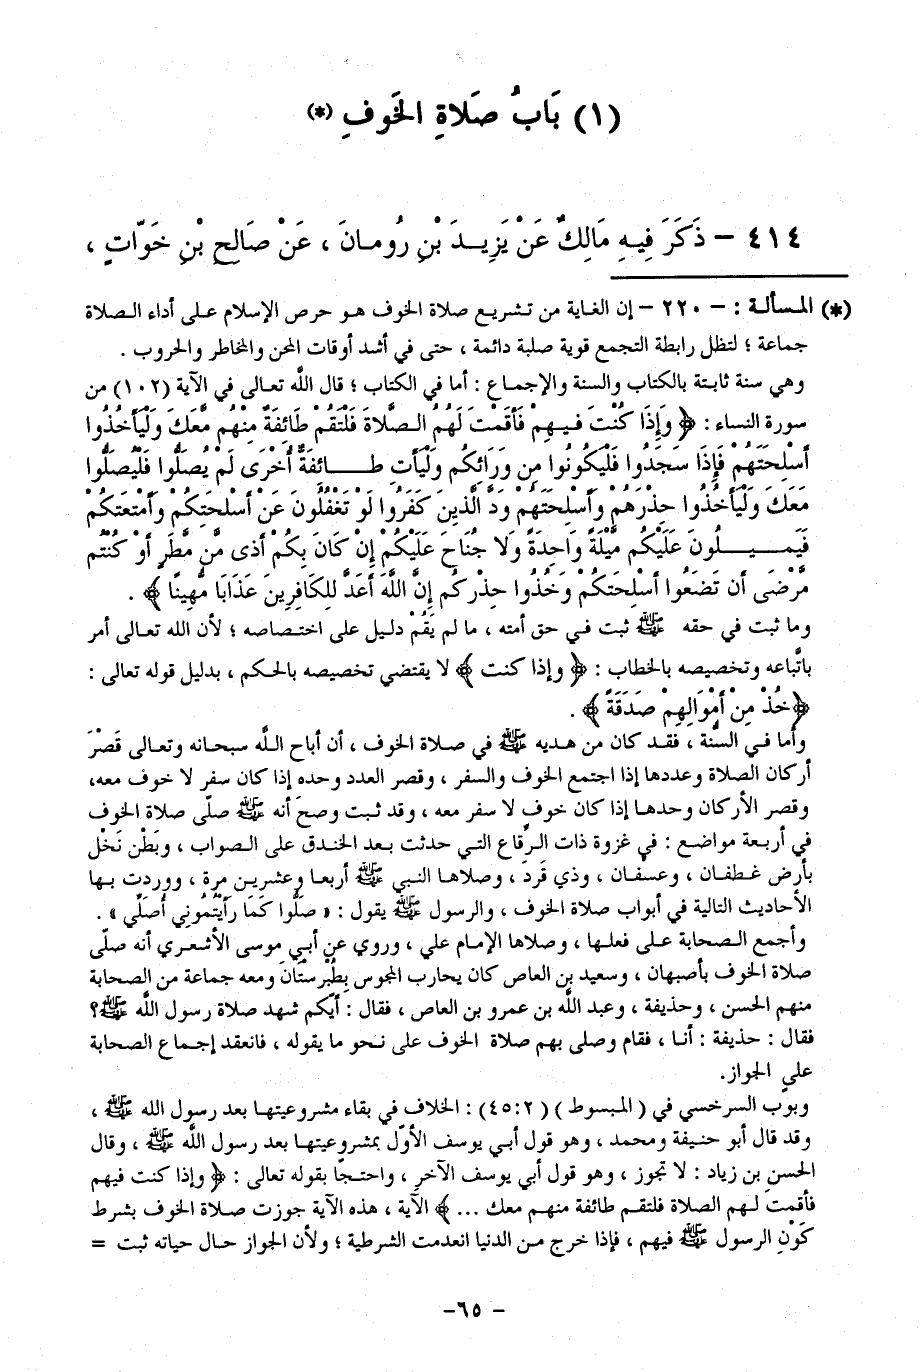 (١) بَابُ صَلَاةِ الخَوفِ (*)
٤١٤ – ذَكَرَ فِيهِ مَالِكٌ عَنْ يَزِيـدَ بْنِ رُومـانَ ، عَنْ صَالِحِ بْنِ خَوَّاتٍ ،
(*) المسألة : – ٢٢٠ – إن الغاية من تشريع صلاة الخوف هو حرص الإسلام على أداء الصلاة
جماعة ؛ لتظل رابطة التجمع قوية صلبة دائمة ، حتى في أشد أوقات المحن والمخاطر والحروب .
وهي سنة ثابتة بالكتاب والسنة والإجماع : أما في الكتاب ؛ قال اللَّه تعالى في الآية (١٠٢) من
سورة النساء : ﴿ وَإِذَا كُنْتَ فِيهِمْ فَأَقَمْتَ لَهُمُ الصَّلَاةَ فَلْتَقُمْ طَائِفَةٌ مِنْهُمْ مَّعَكَ وَلْيَأْخُذُوا
أَسْلِحَتَهُمْ فَإِذَا سَجَدُوا فَلْيَكُونُوا مِن وَرَائِكُم وَلْيَأْتِ طَـــائِفَةٌ أُخْرَى لَمْ يُصَلُّوا فَلْيُصَلُّوا
مَعَكَ وَلْيَأْخُذُوا حِذْرَهُمْ وَأَسْلِحَتَهُمْ وَدَّ الَّذِينَ كَفَرُوا لَوْ تَغْفُلُونَ عَنْ أَسْلِحَتِكُمْ وَأَمْتِعَتِكُمْ
فَيَمِـــيلُونَ عَلَيْكُم مَّيْلَةً وَاحِدَةً وَلَا جُنَاحَ عَلَيْكُمْ إِنْ كَانَ بِكُمْ أَذًى مِّن مَّطَرٍ أَوْ كُنْتُم
مَّرْضَى أَن تَضَعُوا أَسْلِحَتَكُمْ وَخُذُوا حِذْرَكُم إِنَّ اللَّهَ أَعَدَّ لِلكَافِرِينَ عَذَابَا مُّهِينًا ﴾ .
وما ثبت في حقه ﷺ ثبت في حق أمته ، ما لم يَقُمْ دليل على اختصاصه ؛ لأن الله تعالى أمر
باتَّباعه وتخصيصه بالخطاب : ﴿ وإذا كنت ﴾ لا يقتضي تخصيصه بالحكم ، بدليل قوله تعالى :
﴿خُذْ مِنْ أَمْوَالِهِمْ صَدَقَةً ﴾ .
وأما في السنَّة ، فقد كان من هديه ﷺ في صلاة الخوف ، أن أباح اللَّه سبحانه وتعالى قَصْرَ
أركان الصلاة وعددها إذا اجتمع الخوف والسفر ، وقصر العدد وحده إذا كان سفر لا خوف معه،
وقصر الأركان وحدها إذا كان خوفٍ لا سفر معه ، وقد ثبت وصحَ أنه ﷺ صلّى صلاة الخوف
في أربعة مواضع : في غزوة ذات الرِّقاع التي حدثت بعد الخندق على الصواب ، وبَطْن نَخْل
بأرض غطفان ، وعسفان ، وذي قَردَ ، وصلاها النبي ﷺ أربعا وعشرين مرة ، ووردت بها
الأحاديث التالية في أبواب صلاة الخوف ، والرسول ﷺ يقول : « صَلُّوا كَمَا رَأَيْتُمُوني أُصَلِّي » .
وأجمع الصحابة على فعلها ، وصلاها الإمام علي ، وروي عن أبي موسى الأشعري أنه صلّى
صلاة الخوف بأصبهان ، وسعيد بن العاص كان يحارب المجوس بِطَبْرستَان ومعه جماعة من الصحابة
منهم الحسن ، وحذيفة ، وعبد اللَّه بن عمرو بن العاص ، فقال : أيّكم شهد صلاة رسول اللَّه ﷺ؟
فقال : حذيفة : أنا ، فقام وصلى بهم صلاة الخوف على نحو ما يقوله ، فانعقد إجماع الصحابة
على الجواز.
وبوب السرخسي في ( المبسوط ) (٢:٤٥) : الخلاف في بقاء مشروعيتها بعد رسول الله ﷺ ،
وقد قال أبو حنيفة ومحمد ، وهو قول أبي يوسف الأوّل بمشروعيتها بعد رسول اللَّه ﷺ ، وقال
الحسن بن زياد : لا تجوز ، وهو قول أبي يوسف الآخر ، واحتجّا بقوله تعالى : ﴿ وإذا كنت فيهم
فأقمت لهم الصلاة فلتقم طائفة منهم معك ... ﴾ الآية ، هذه الآية جوزت صلاة الخوف بشرط
كَوْنِ الرسول ﷺ فيهم ، فإذا خرج من الدنيا انعدمت الشرطية ؛ ولأن الجواز حال حياته ثبت =
– ٦٥–